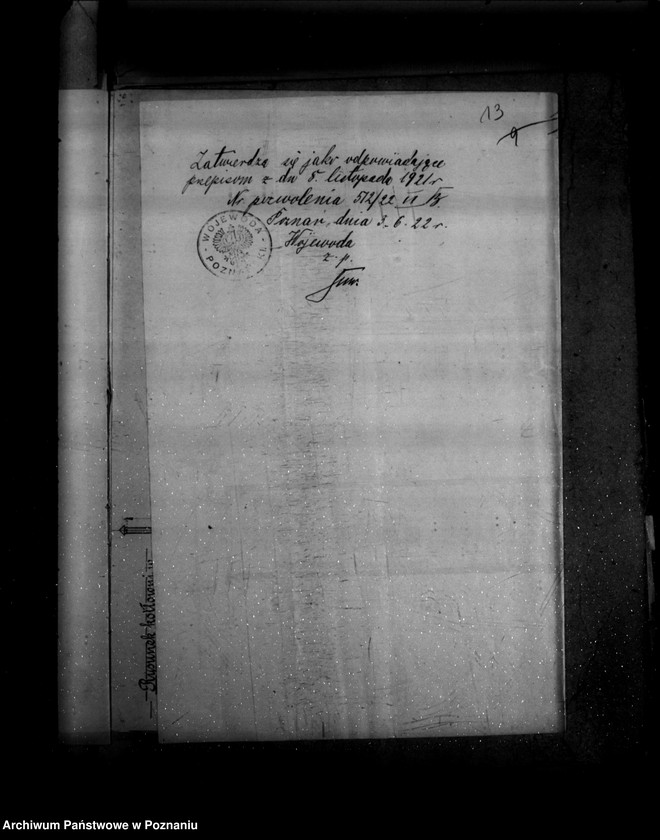 13
9
Zatwierdza się jako odpowiadające
przepisom z dn 5. listopada 1921 r
Nr pozwolenia 512/22 II B
Poznań, dnia 3. 6. 22 r.
Wojewoda
z p.
WOJEWODA
POZNAŃSKI
Rysunek kotłowni
Archiwum Państwowe w Poznaniu